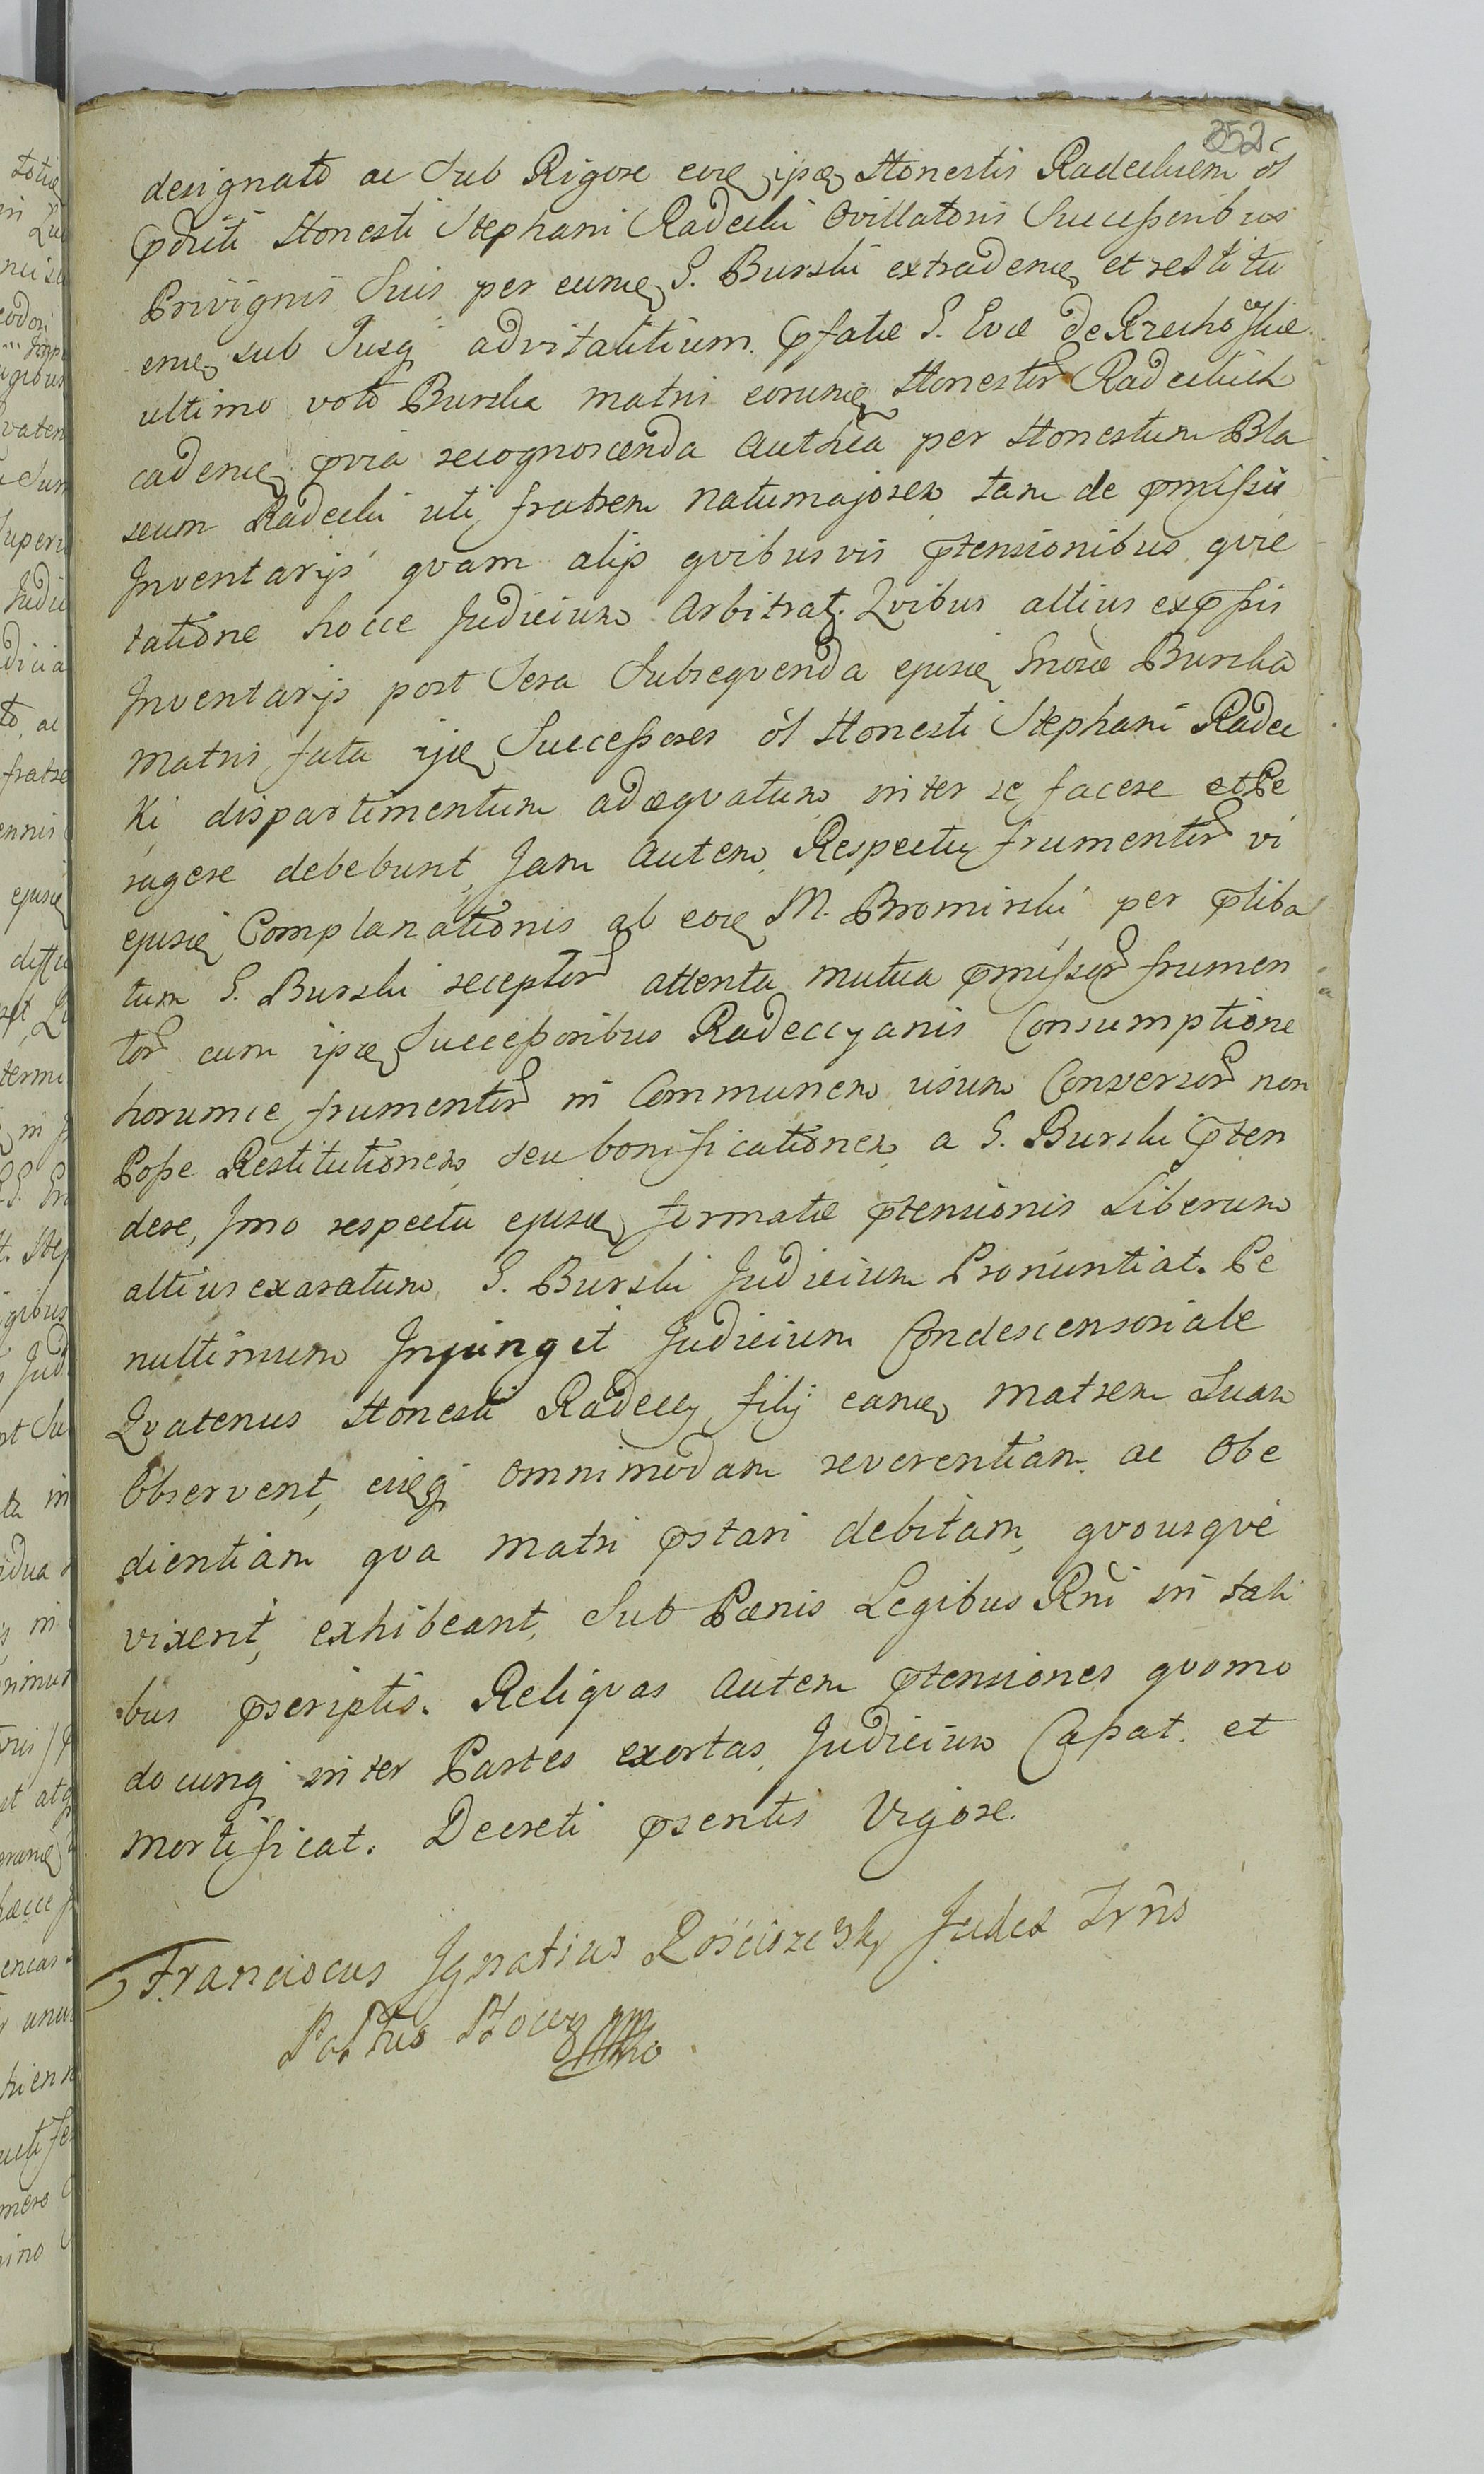 352
designato ac Sub Rigore eore ipse Honestis Radeckiem ol
pdicti Honesti Stephani Radecki Ovillatoris Successoribus
Privignis Suis per eume G. Burski extradene et restitu
ene sub Jusq advitalitium pfatæ G. Evæ de Krzecho
ultimo voto Burska matri eorume Honestor Radeckich
cadene qvia recognoscenda Authca per Honestum Bla
seum Radecki uti fratrem natumajorem tam de pmissis
Inventarijs qvam alijs qvibusvis ptensionibus qvie
tatione hocce Judicium Arbitrat. Qvibus altius expssis
Inventarijs post Sera Subseqvenda ejusde Gnosæ Burska
matris fata ijde Successores ol Honesti Stephani Radec
Ki dispartimentum adæqvatum inter se facere et Pe
ragere debebunt, Jam Autem Respectu frumentor vi
ejusde Complanationis ab eode M. Bromirski per pliba
tum G. Burski receptor attenta mutua pmissor frumen
tor cum ipse Successoribus Radeccyanis Consumptione
horumce frumentor in Communem usum Conversor non
Posse Restitutionem seu bonificationem a G. Burski pten
dere, Imo respectu ejusde formatæ ptensionis Liberum
altius exaratum G. Burski Judicium Pronuntiat. Pe
nultimum Injungit Judicium Condescensoriale
Qvatenus Honesti Radeccy filij eame matrem Suam
Observent, eideq omnimodam reverentiam ac Obe
dientiam qva matri pstari debitam, qvousqve
vixerit, exhibeant, Sub Pænis Legibus Rni in tali
bus pscriptis. Reliqvas Autem ptensiones qvomo
documq inter Partes exortas Judicium Capat et
mortificat. Decreti psentis Vigore.
Franciscus Ignatius Rościszewsky Judex Trns